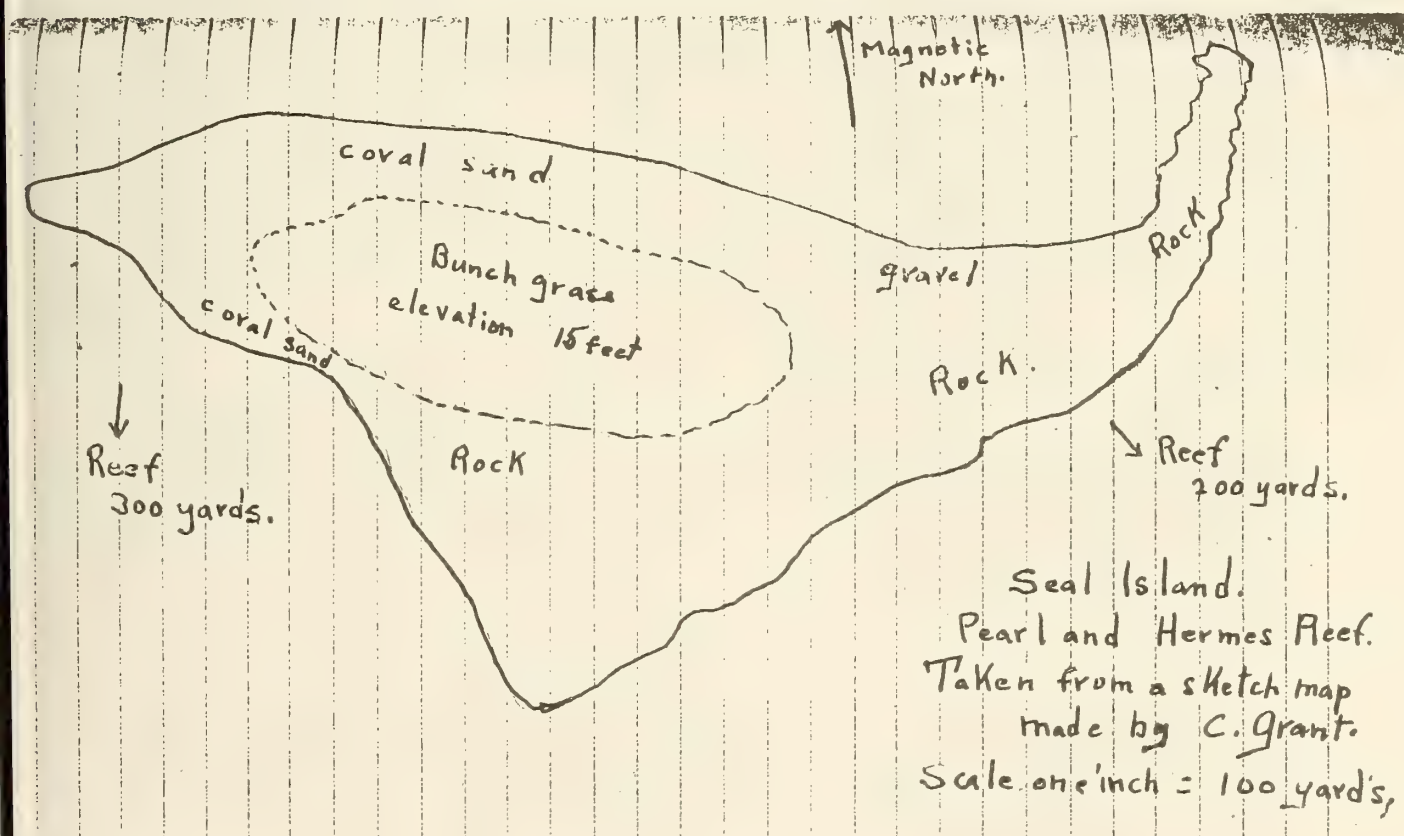 Magnetic
North.
coral sand
Bunch grass
elevation 15 feet
coral sand
gravel
Rock
Rock.
Rock
Reef
300 yards.
Reef
200 yards.
Seal Island.
Pearl and Hermes Reef.
Taken from a sketch map
made by C. Grant.
Scale one inch = 100 yards,